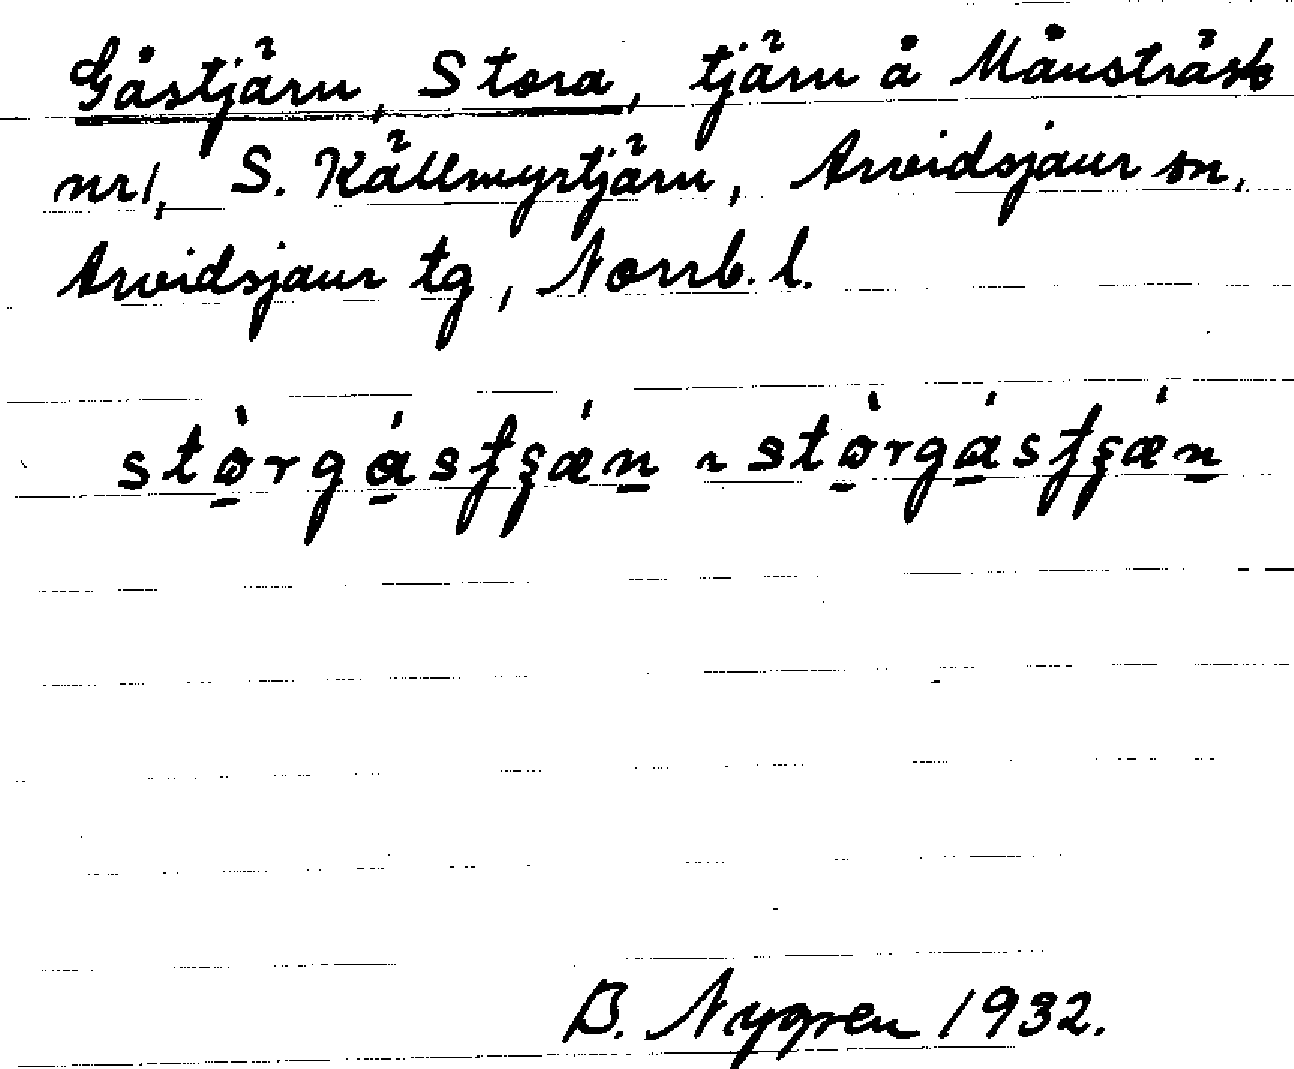 Gåstjärn, Stora, tjärn å Månsträsk
nr 1, S. Källmyrtjärn, Arvidsjaur sn,
Arvidsjaur tg, Norrb. l.
B. Nygren 1932.